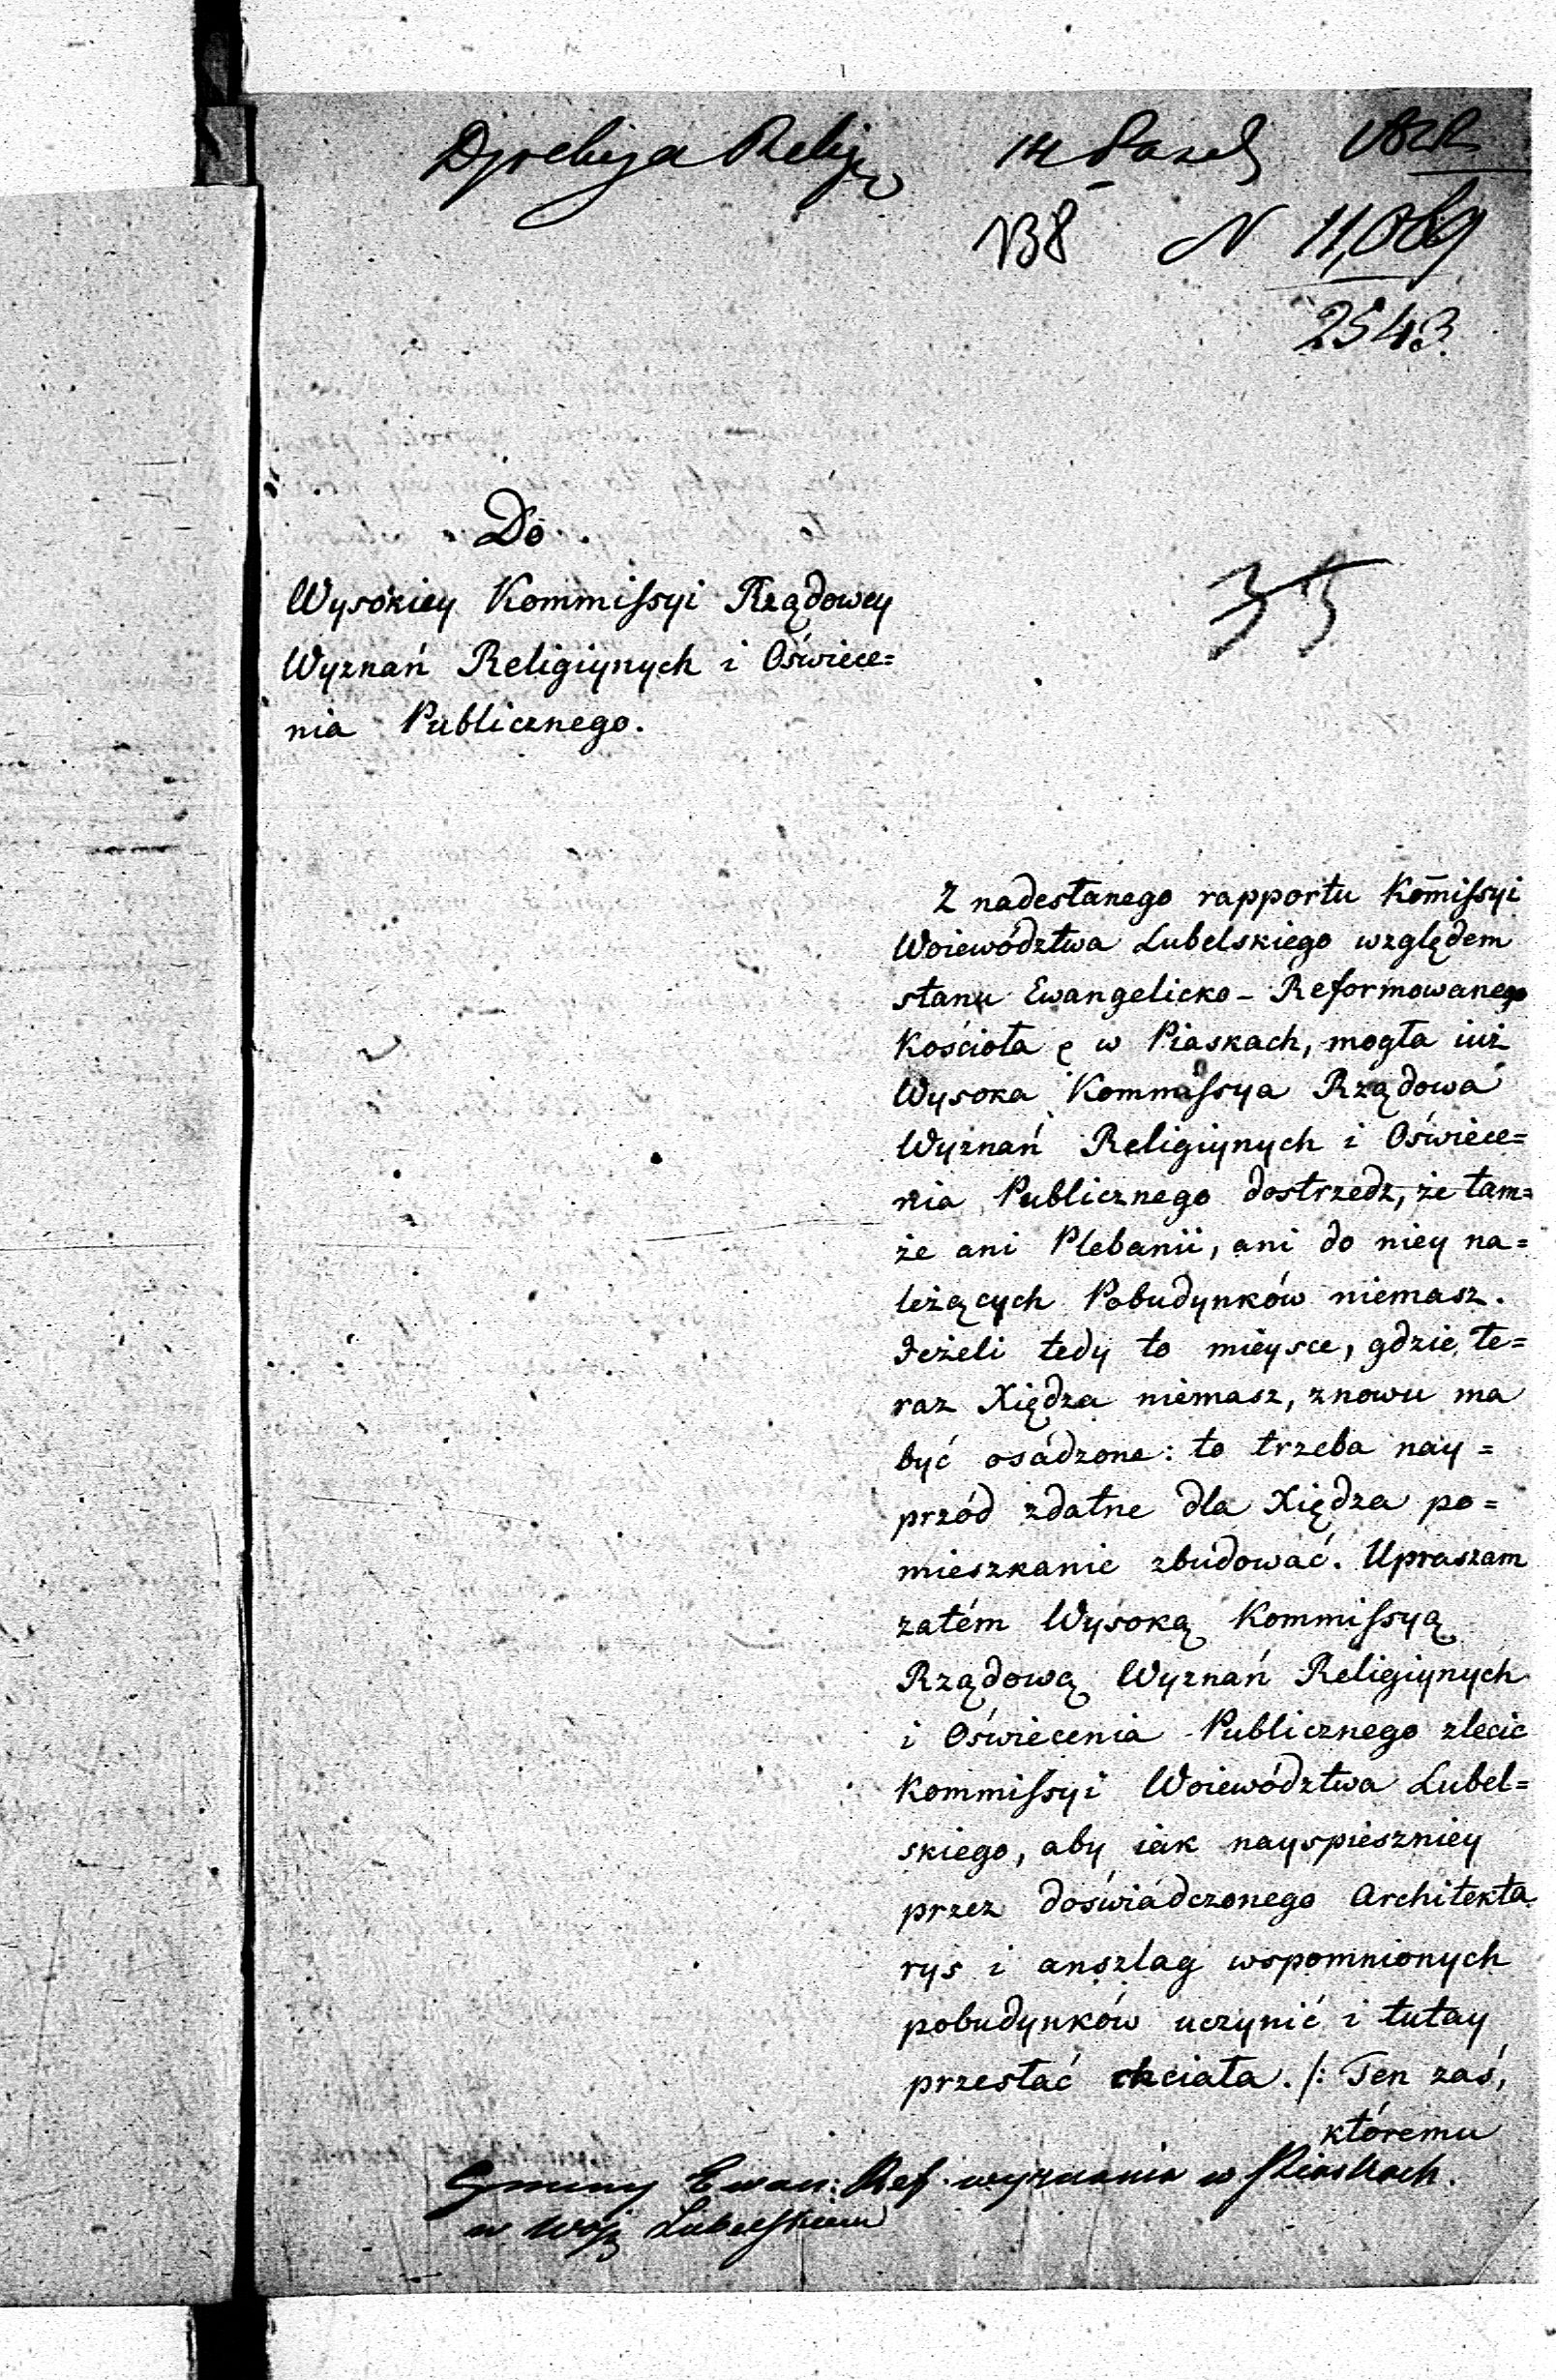 Dyrekcya Relig 14 Pazdz
N 11,089
2543
35
Do
Wysokiey Kommissyi Rządowey
Wyznań Religiynych i Oświece=
nia Publicznego.
Z nadesłanego rapportu Kom̄issyi
Woiewództwa Lubelskiego względem
stanu Ewangelicko-Reformowanego
Kościoła w Piaskach, mogła iuż
Wysoka Kommissya Rządowa
Wyznań Religiynych i Oświece=
nia Publicznego dostrzedz, że tam=
że ani Plebanii, ani do niey na=
leżących Pobudynków niemasz.
Jeżeli tedy to mieysce, gdzie te=
raz Xiędza niemasz, znowu ma
być osádzone: to trzeba nay=
przód zdatne dla Xiędza po=
mieszkanie zbudować. Upraszam
zatém Wysoką Kommissyą
Rządową Wyznań Religiynych
i Oświecenia Publicznego zlecić
Kommissyi Woiewództwa Lubel=
skiego, aby iak nayspieszniey
przez doświádczonego Architekta
rys i anszlag wspomnionych
pobudynków uczynić i tutay
przesłać chciała. /: Ten zaś,
któremu
Gminy Ewan: Ref. wyznania w Piaskach.
w Wojz Lubelskiem